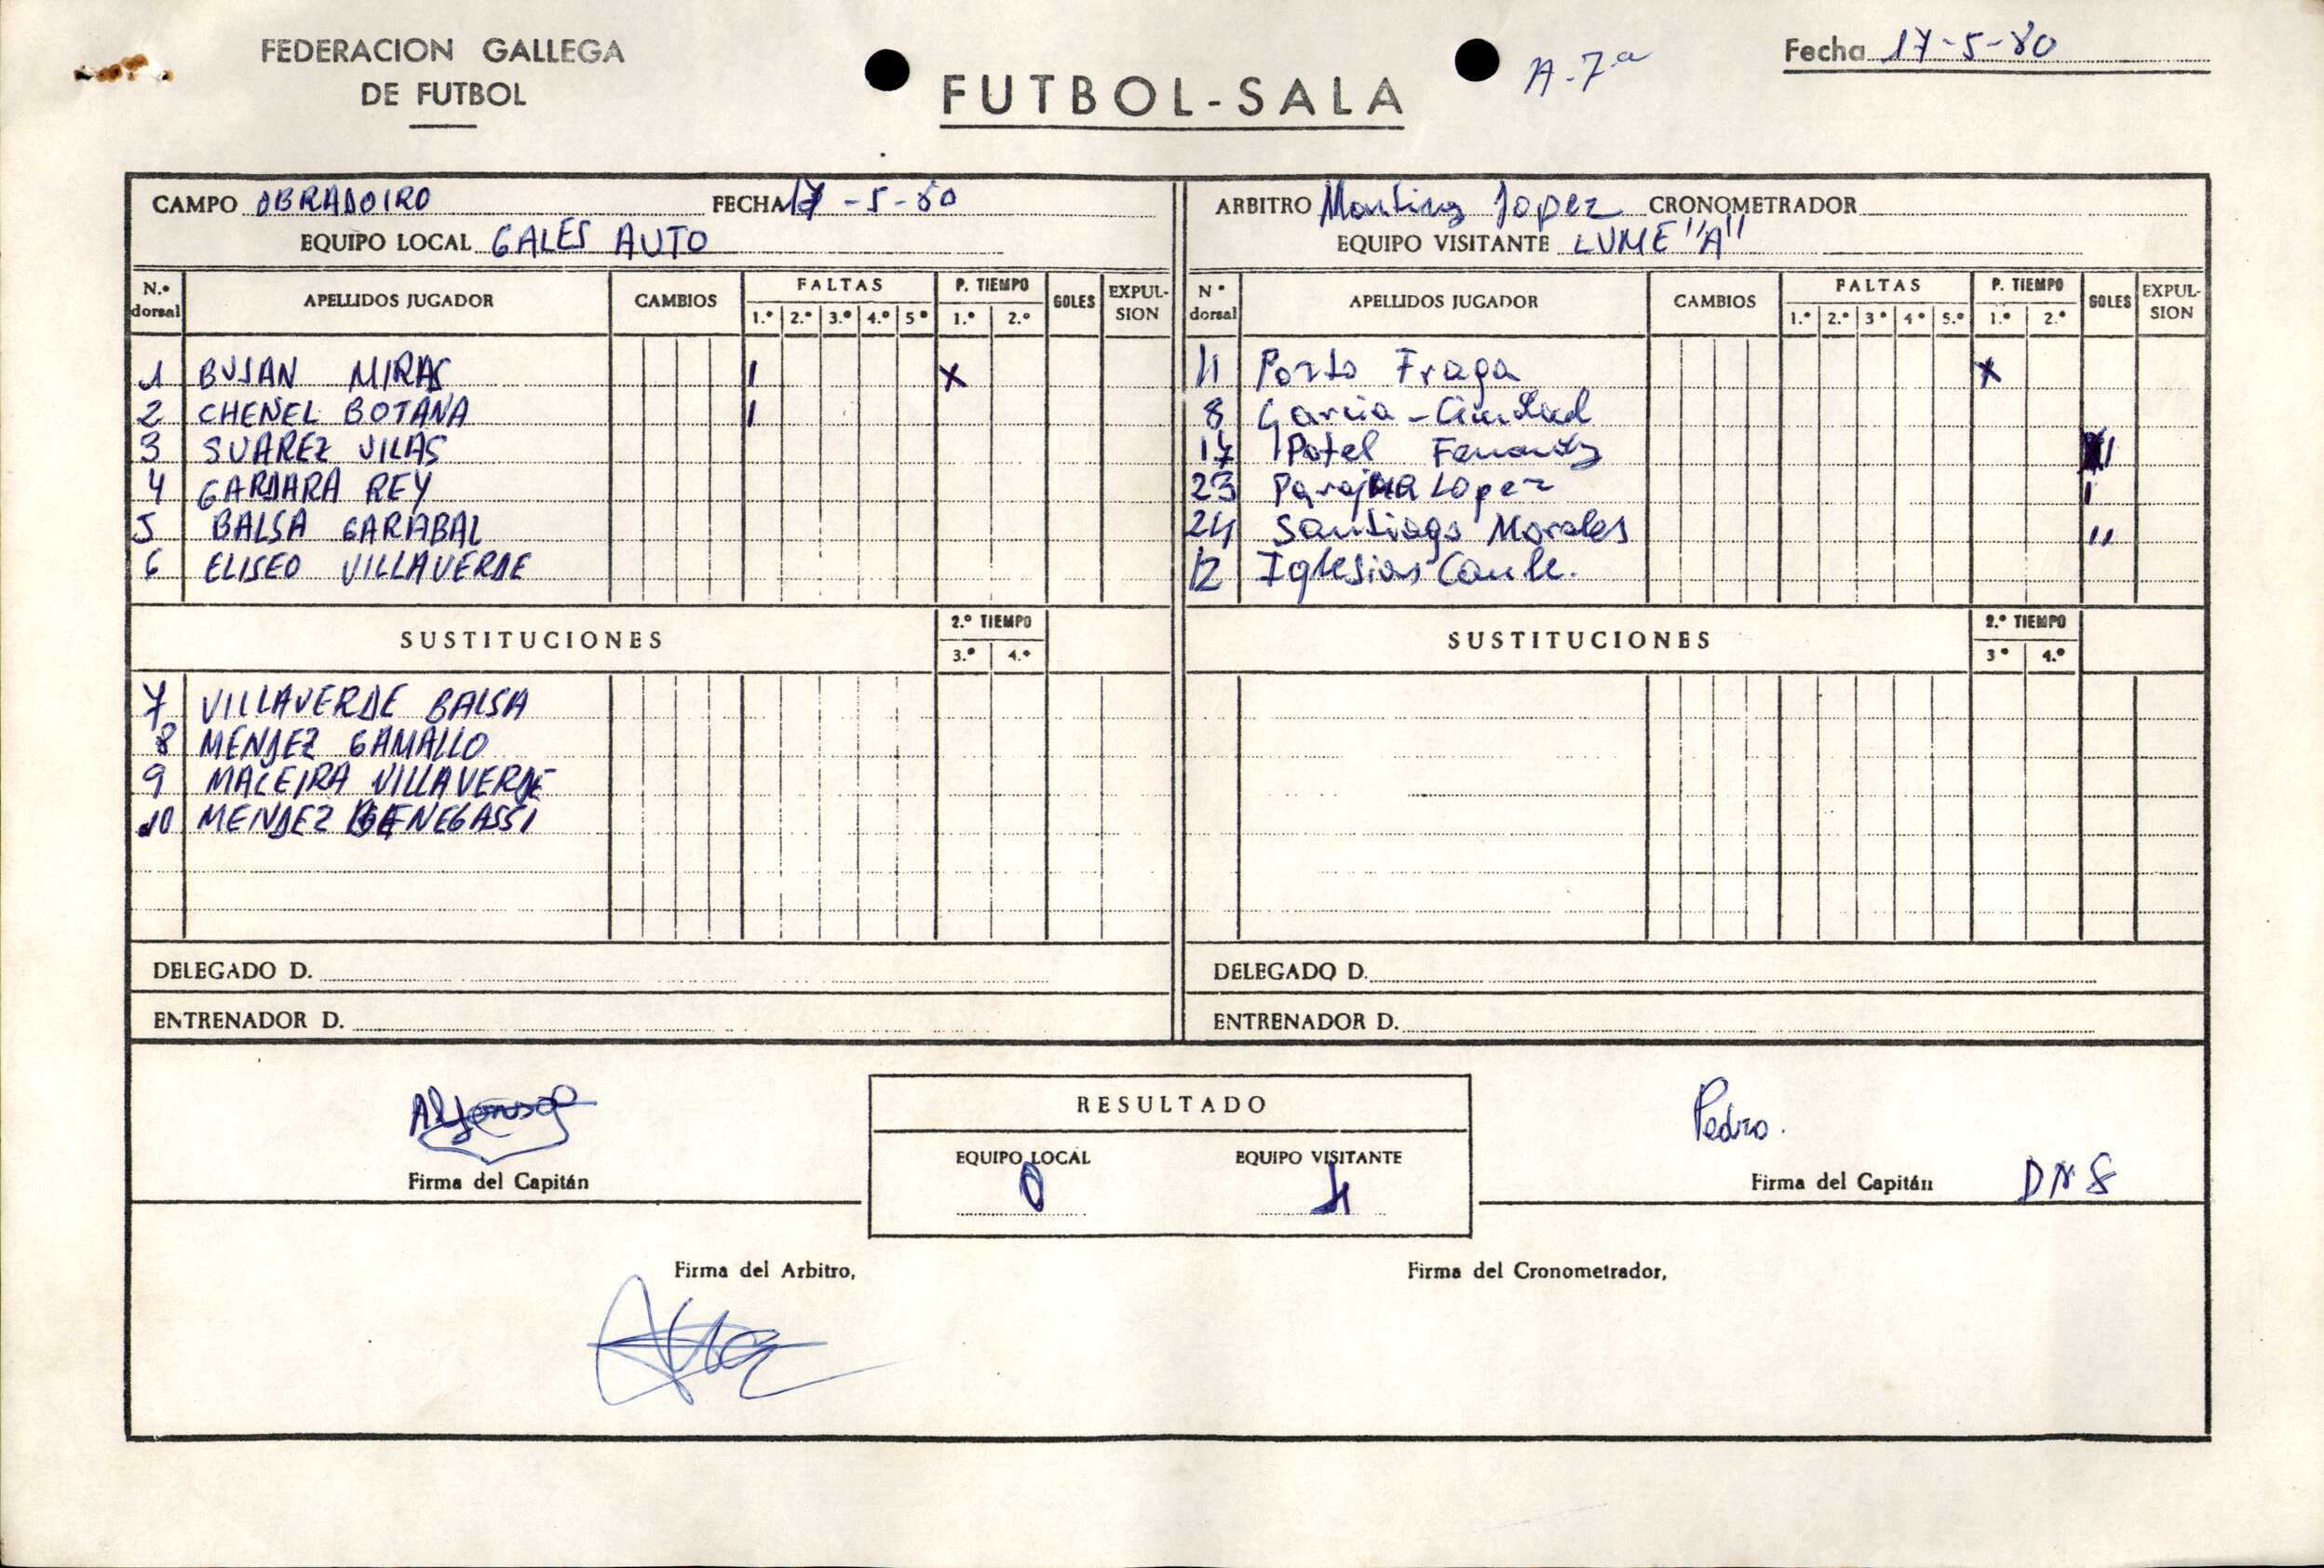 FEDERACION GALLEGA
DE FUTBOL
FUTBOL-SALA
A-7ª
Fecha 17-5-80
CAMPO OBRADOIRO FECHA 17-5-80
EQUIPO LOCAL GALES AUTO
N.º dorsal APELLIDOS JUGADOR CAMBIOS FALTAS 1.º 2.º 3.º 4.º 5º P. TIEMPO 1.º 2.º GOLES EXPULSION
1 BUJAN MIRAS I X
2 CHENEL BOTANA I
3 SUAREZ VILAS
4 GARDARA REY
5 BALSA GARABAL
6 ELISEO VILLAVERDE
SUSTITUCIONES 2.º TIEMPO 3.º 4.º
7 VILLAVERDE BALSA
8 MENDEZ GAMALLO
9 MACEIRA VILLAVERDE
10 MENDEZ BENEGASSI
DELEGADO D.
ENTRENADOR D.
ARBITRO Martinez Lopez CRONOMETRADOR
EQUIPO VISITANTE LUME "A"
Nº dorsal APELLIDOS JUGADOR CAMBIOS FALTAS 1.º 2.º 3º 4º 5.º P. TIEMPO 1.º 2.º GOLES EXPULSION
11 Porto Fraga X
8 Garcia-Ciudad
17 Potel I
23 Lopez I
24 Santiago Morales II
12 Iglesias
SUSTITUCIONES 2.º TIEMPO 3º 4.º
DELEGADO D.
ENTRENADOR D.
Alfonso
Firma del Capitán
RESULTADO
EQUIPO LOCAL EQUIPO VISITANTE
0 4
Pedro.
Firma del Capitán DN8
Firma del Arbitro,
Firma del Cronometrador,